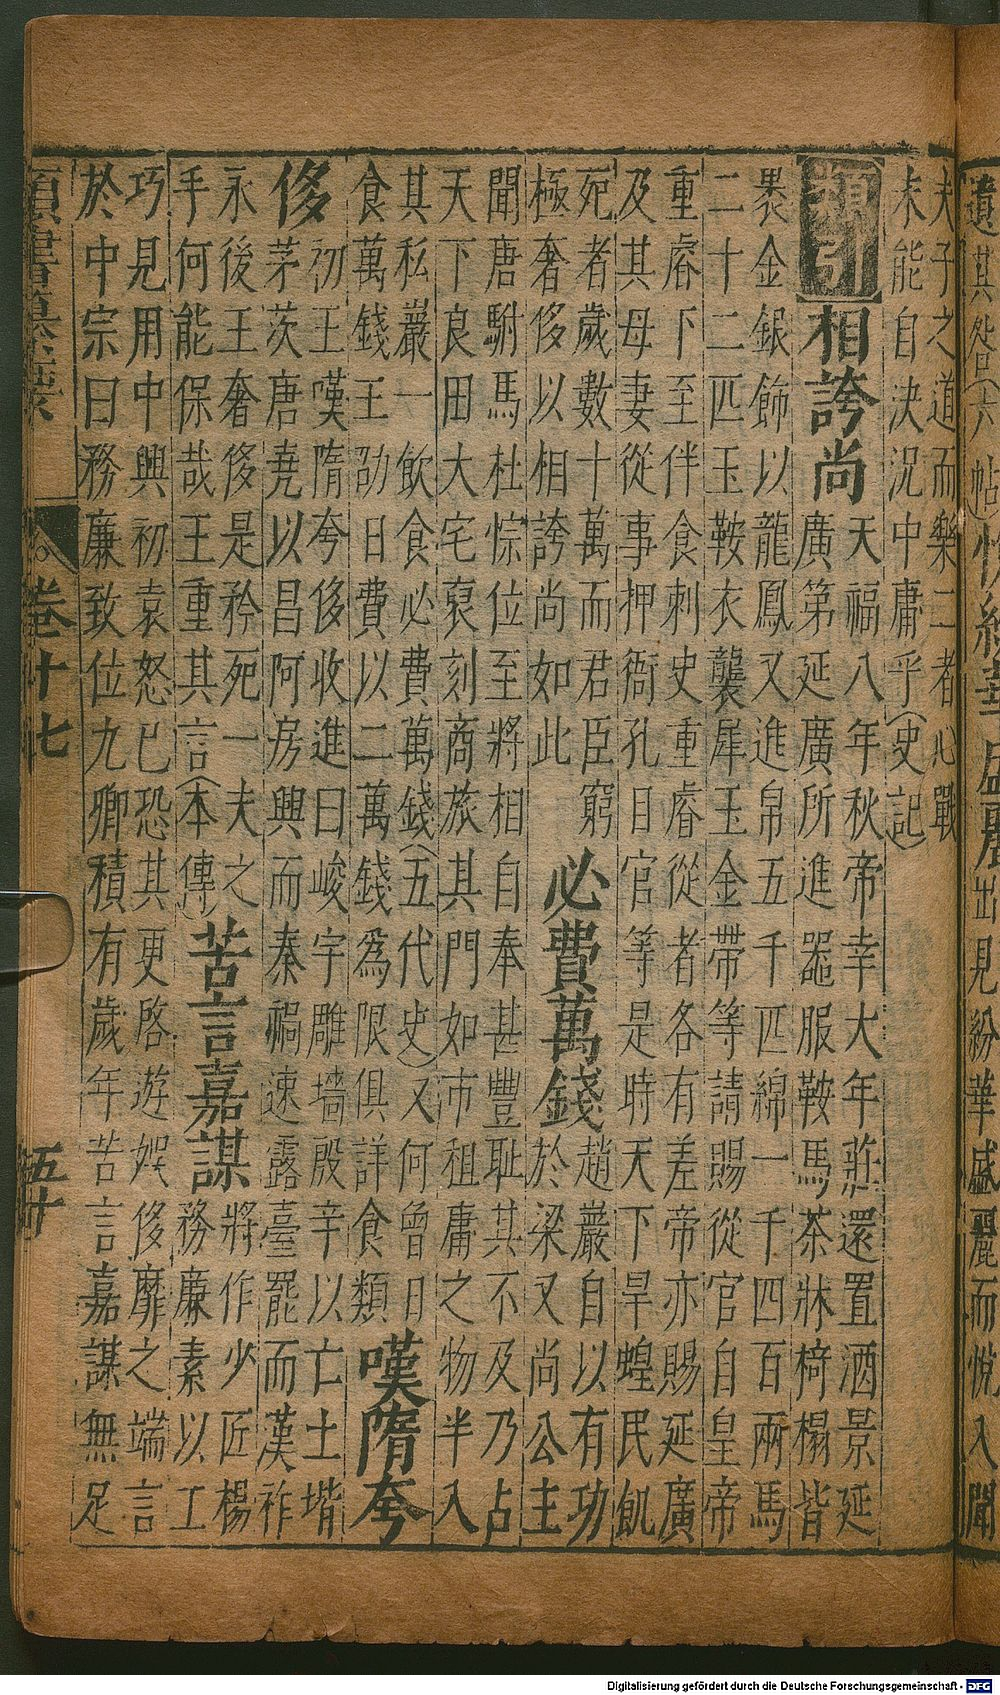 遺其咎(六帖)忻紛華盛麗出見紛華盛麗而悅入聞
夫子之道而樂二者心戰
未能自決況中庸乎(史記)
類引
相誇尚
天福八年秋帝幸大年莊還置酒景延
廣第延廣所進器服鞍馬茶牀椅榻皆
裹金銀飾以龍鳳又進帛五千匹綿一千四百兩馬
二十二匹玉鞍衣襲犀玉金帶等請賜從官自皇帝
重睿下至伴食刺史重睿從者各有差帝亦賜延廣
及其母妻從事押衙孔目官等是時天下旱蝗民飢
死者歲數十萬而君臣窮
極奢侈以相誇尚如此
必費萬錢
趙巖自以有功
於梁又尚公主
聞唐駙馬杜悰位至將相自奉甚豐恥其不及乃占
天下良田大宅裒刻商旅其門如市租庸之物半入
其私巖一飲食必費萬錢(五代史)又何曾日
食萬錢王劭日費以二萬錢為限俱詳食類
嘆隋夸
侈
初王嘆隋夸侈收進曰峻宇雕墻殷辛以亡土堦
茅茨唐堯以昌阿房興而秦禍速露臺罷而漢祚
永後王奢侈是矜死一夫之
手何能保哉王重其言(本傳)
苦言嘉謀
將作少匠楊
務廉素以工
巧見用中興初袁怒已恐其更啓遊娛侈靡之端言
於中宗曰務廉致位九卿積有歲年苦言嘉謀無足
類書纂要 卷十七 五十
Digitalisierung gefördert durch die Deutsche Forschungsgemeinschaft - DFG